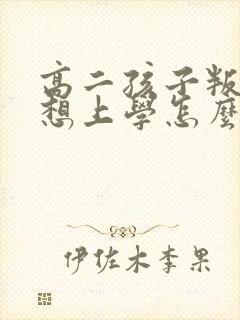 高二孩子叛
想上學怎麼
伊佐木李果